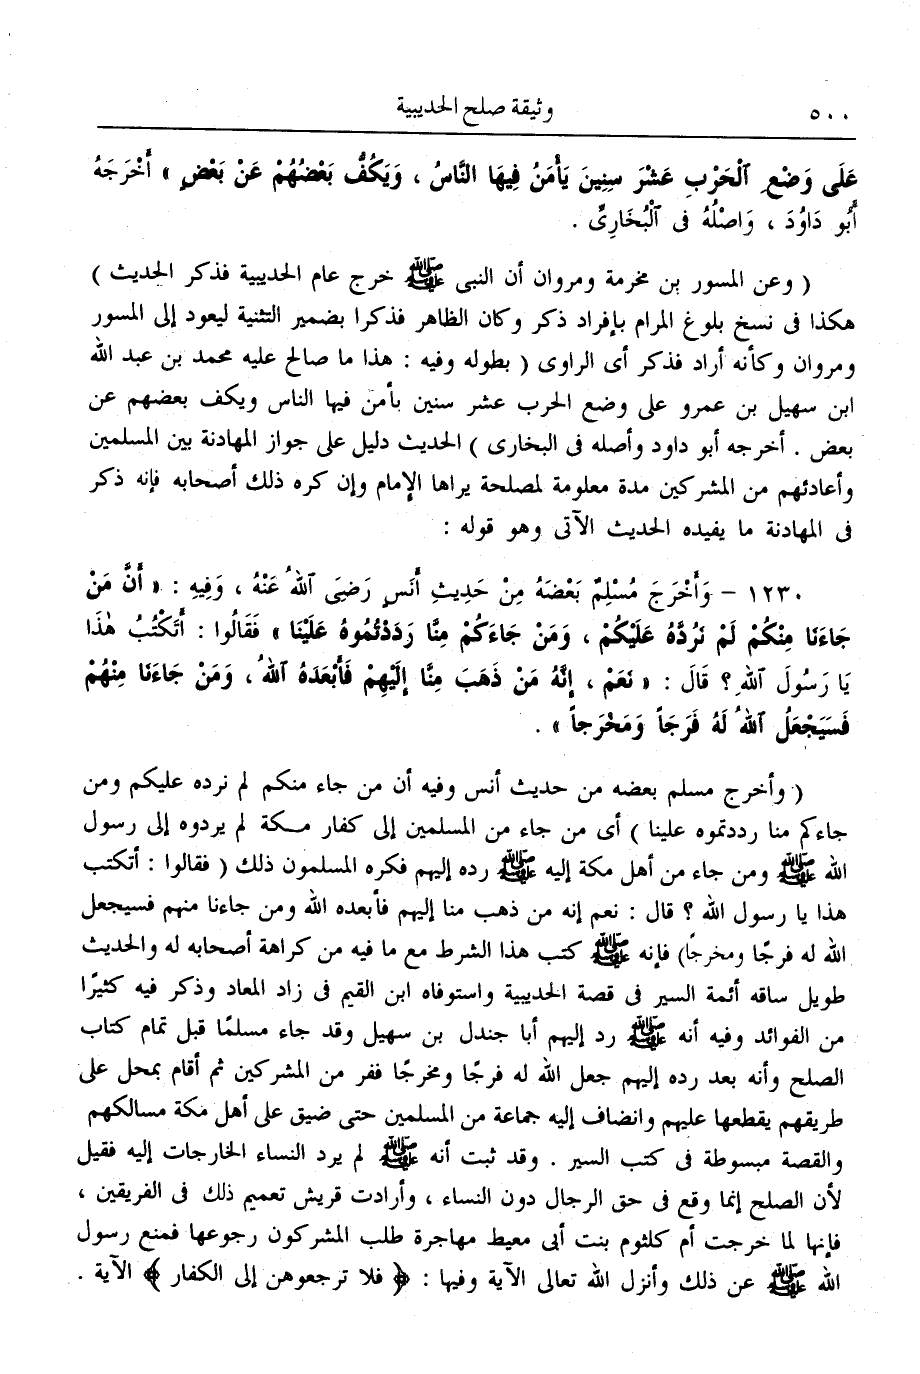 ٥٠٠ وثيقة صلح الحديبية
عَلَى وَضْعِ ٱلْحَرْبِ عَشْرَ سِنِينَ يَأْمَنُ فِيهَا النَّاسُ ، وَيَكُفُّ بَعْضُهُمْ عَنْ بَعْضٍ » أَخْرَجَهُ
أَبُو دَاوُدَ ، وَاصْلُهُ فى ٱلْبُخَارِىِّ .
( وعن المسور بن مخرمة ومروان أن النبى ﷺ خرج عام الحديبية فذكر الحديث )
هكذا فى نسخ بلوغ المرام بإفراد ذكر وكان الظاهر فذكرا بضمير التثنية ليعود إلى المسور
ومروان وكأنه أراد فذكر أى الراوى ( بطوله وفيه : هذا ما صالح عليه محمد بن عبد الله
ابن سهيل بن عمرو على وضع الحرب عشر سنين يأمن فيها الناس ويكف بعضهم عن
بعض . أخرجه أبو داود وأصله فى البخارى ) الحديث دليل على جواز المهادنة بين المسلمين
وأعادئهم من المشركين مدة معلومة لمصلحة يراها الإمام وإن كره ذلك أصحابه فإنه ذكر
فى المهادنة ما يفيده الحديث الآتى وهو قوله :
١٢٣٠ – وَأَخْرَجَ مُسْلِمٌ بَعْضَهُ مِنْ حَدِيثِ أَنَسٍ رَضِىَ ٱللهُ عَنْهُ ، وَفِيهِ : « أَنَّ مَنْ
جَاءَنَا مِنْكُمْ لَمْ نَرُدَّهُ عَلَيْكُمْ ، وَمَنْ جَاءَكُمْ مِنَّا رَدَدْتُمُوهُ عَلَيْنَا » فَقَالُوا : أَتَكْتُبُ هٰذَا
يَا رَسُولَ ٱللهِ ؟ قَالَ : « نَعَمْ ، إِنَّهُ مَنْ ذَهَبَ مِنَّا إِلَيْهِمْ فَأَبْعَدَهُ ٱللهُ ، وَمَنْ جَاءَنَا مِنْهُمْ
فَسَيَجْعَلُ ٱللهُ لَهُ فَرَجَاً وَمَخْرَجاً » .
( وأخرج مسلم بعضه من حديث أنس وفيه أن من جاء منكم لم نرده عليكم ومن
جاءكم منا رددتموه علينا ) أى من جاء من المسلمين إلى كفار مكة لم يردوه إلى رسول
الله ﷺ ومن جاء من أهل مكة إليه ﷺ رده إليهم فكره المسلمون ذلك ( فقالوا : أتكتب
هذا يا رسول الله ؟ قال : نعم إنه من ذهب منا إليهم فأبعده الله ومن جاءنا منهم فسيجعل
الله له فرجًا ومخرجًا) فإنه ﷺ كتب هذا الشرط مع ما فيه من كراهة أصحابه له والحديث
طويل ساقه أئمة السير فى قصة الحديبية واستوفاه ابن القيم فى زاد المعاد وذكر فيه كثيرًا
من الفوائد وفيه أنه ﷺ رد إليهم أبا جندل بن سهيل وقد جاء مسلمًا قبل تمام كتاب
الصلح وأنه بعد رده إليهم جعل الله له فرجًا ومخرجًا ففر من المشركين ثم أقام بمحل على
طريقهم يقطعها عليهم وانضاف إليه جماعة من المسلمين حتى ضيق على أهل مكة مسالكهم
والقصة مبسوطة فى كتب السير . وقد ثبت أنه ﷺ لم يرد النساء الخارجات إليه فقيل
لأن الصلح إنما وقع فى حق الرجال دون النساء ، وأرادت قريش تعميم ذلك فى الفريقين ،
فإنها لما خرجت أم كلثوم بنت أبى معيط مهاجرة طلب المشركون رجوعها فمنع رسول
الله ﷺ عن ذلك وأنزل الله تعالى الآية وفيها : ﴿ فلا ترجعوهن إلى الكفار ﴾ الآية .